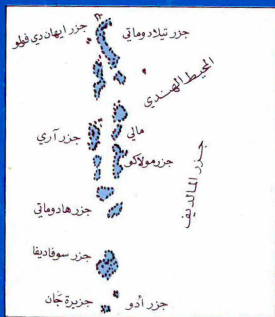 جزر تيلادوماتي
جزر ايهاندي فولو
المحيط الهندي
مالي
جزر آري
جزر مولاكو
جزر المالديف
جزر هادوماتي
جزر سوفاديفا
جزر أدو
جزيرة جان